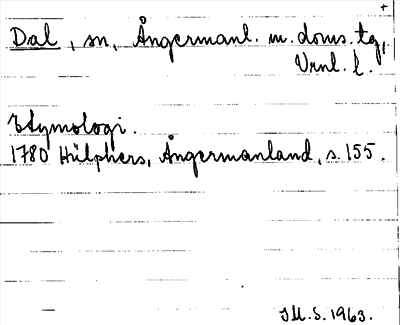 +
Dal, sn, Ångermanl. m. doms. tg,
Vrnl. l.
Etymologi.
1780 Hülphers, Ångermanland, s. 155.
J.M.S. 1963.